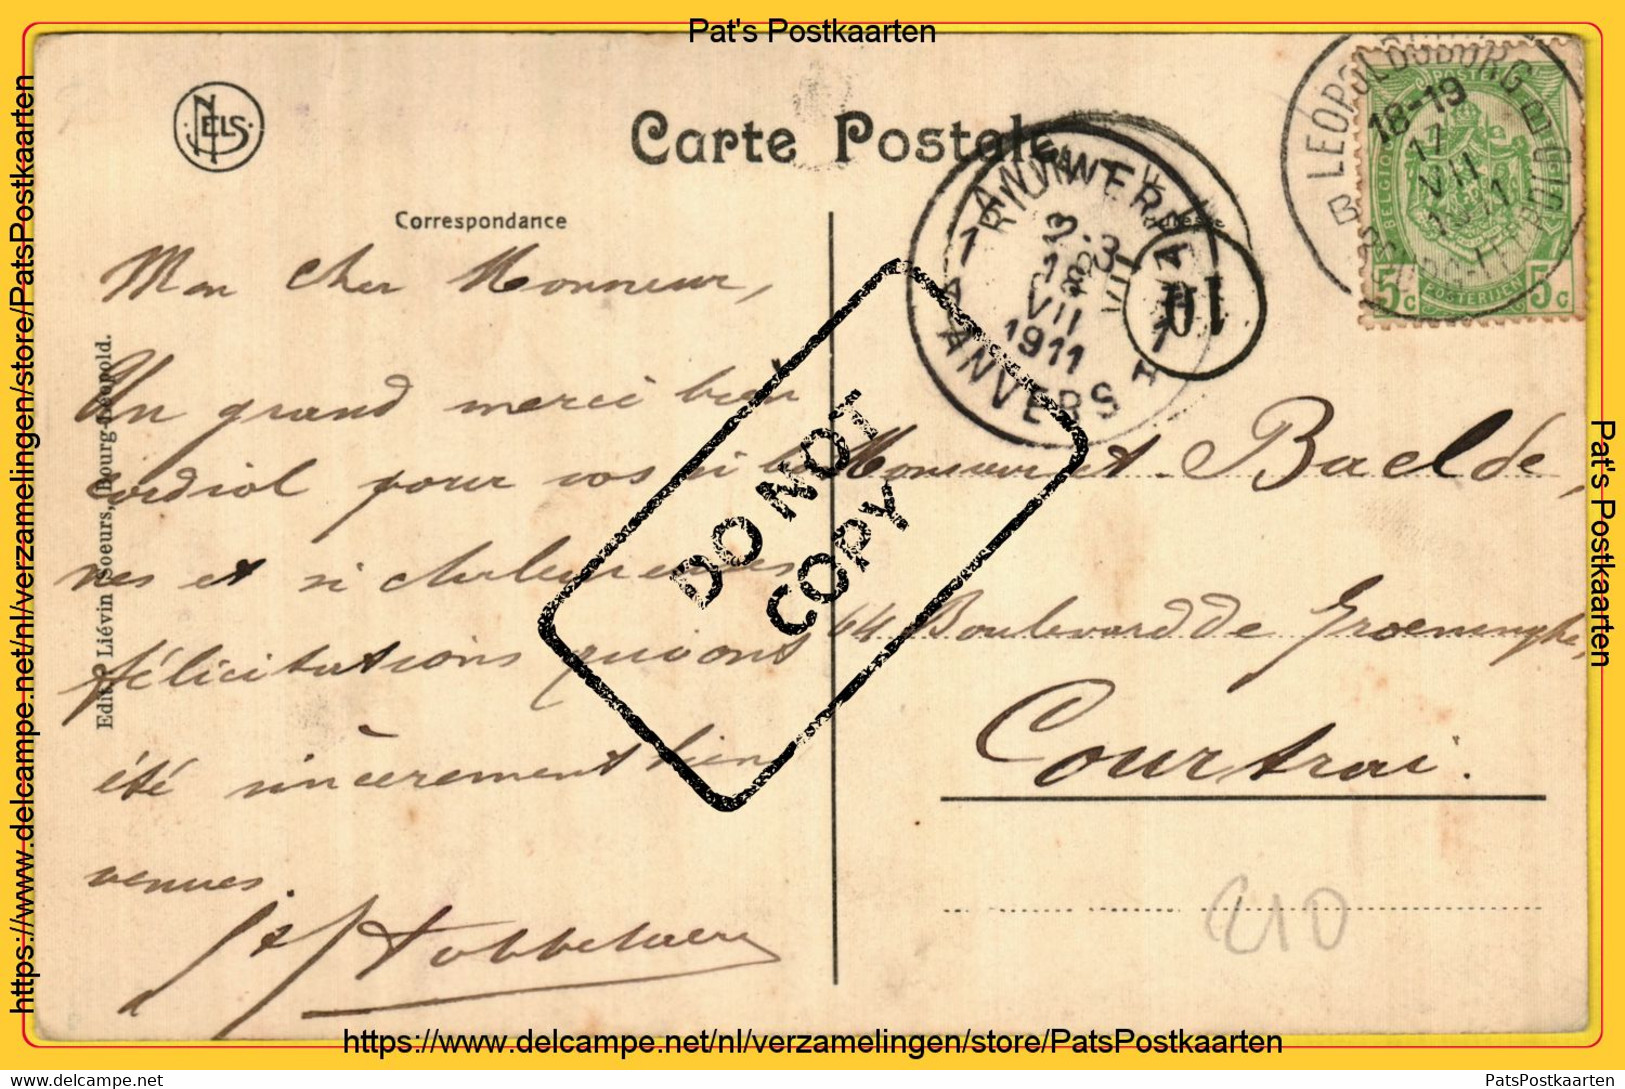 Pat's Postkaarten
https://www.delcampe.net/nl/verzamelingen/store/PatsPostkaarten
NELS
Carte Postale
Correspondance
Mon cher Monsieur,
Un grand merci bien
cordial pour vos si bon
nes et si chaleureuses
félicitations qui ont
été sincèrement bien
venues.
Edit. Liévin Soeurs, Bourg-Léopold.
DO NOT
COPY
ANTWERPEN
1911
VII
ANVERS
10
LEOPOLDSBURG
18-19
17
VII
1911
BELGIQUE
POSTERIJEN
5c 5c
Monsieur et Baelde,
64 Boulevard de Groeninghe,
Courtrai.
210
Pat's Postkaarten
https://www.delcampe.net/nl/verzamelingen/store/PatsPostkaarten
www.delcampe.net
PatsPostkaarten